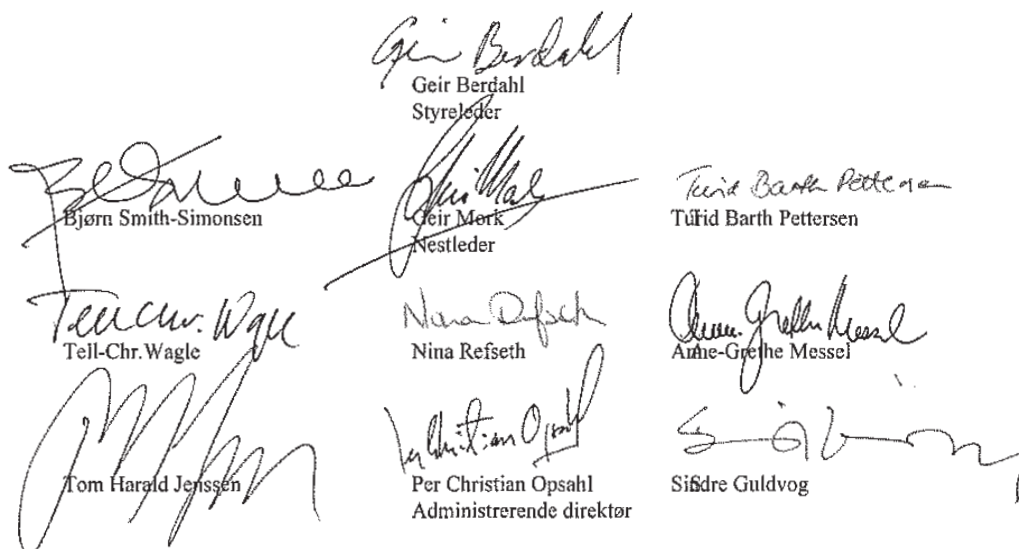 Geir Berdahl
Geir Berdahl
Styreleder
Bjørn Smith-Simonsen
Geir Mork
Geir Mork
Nestleder
Turid Barth Pettersen
Turid Barth Pettersen
Tell-Chr. Wagle
Tell-Chr.Wagle
Nina Refseth
Nina Refseth
Anne-Grethe Messel
Anne-Grethe Messel
Tom Harald Jenssen
Per Christian Opsahl
Per Christian Opsahl
Administrerende direktør
Sindre Guldvog